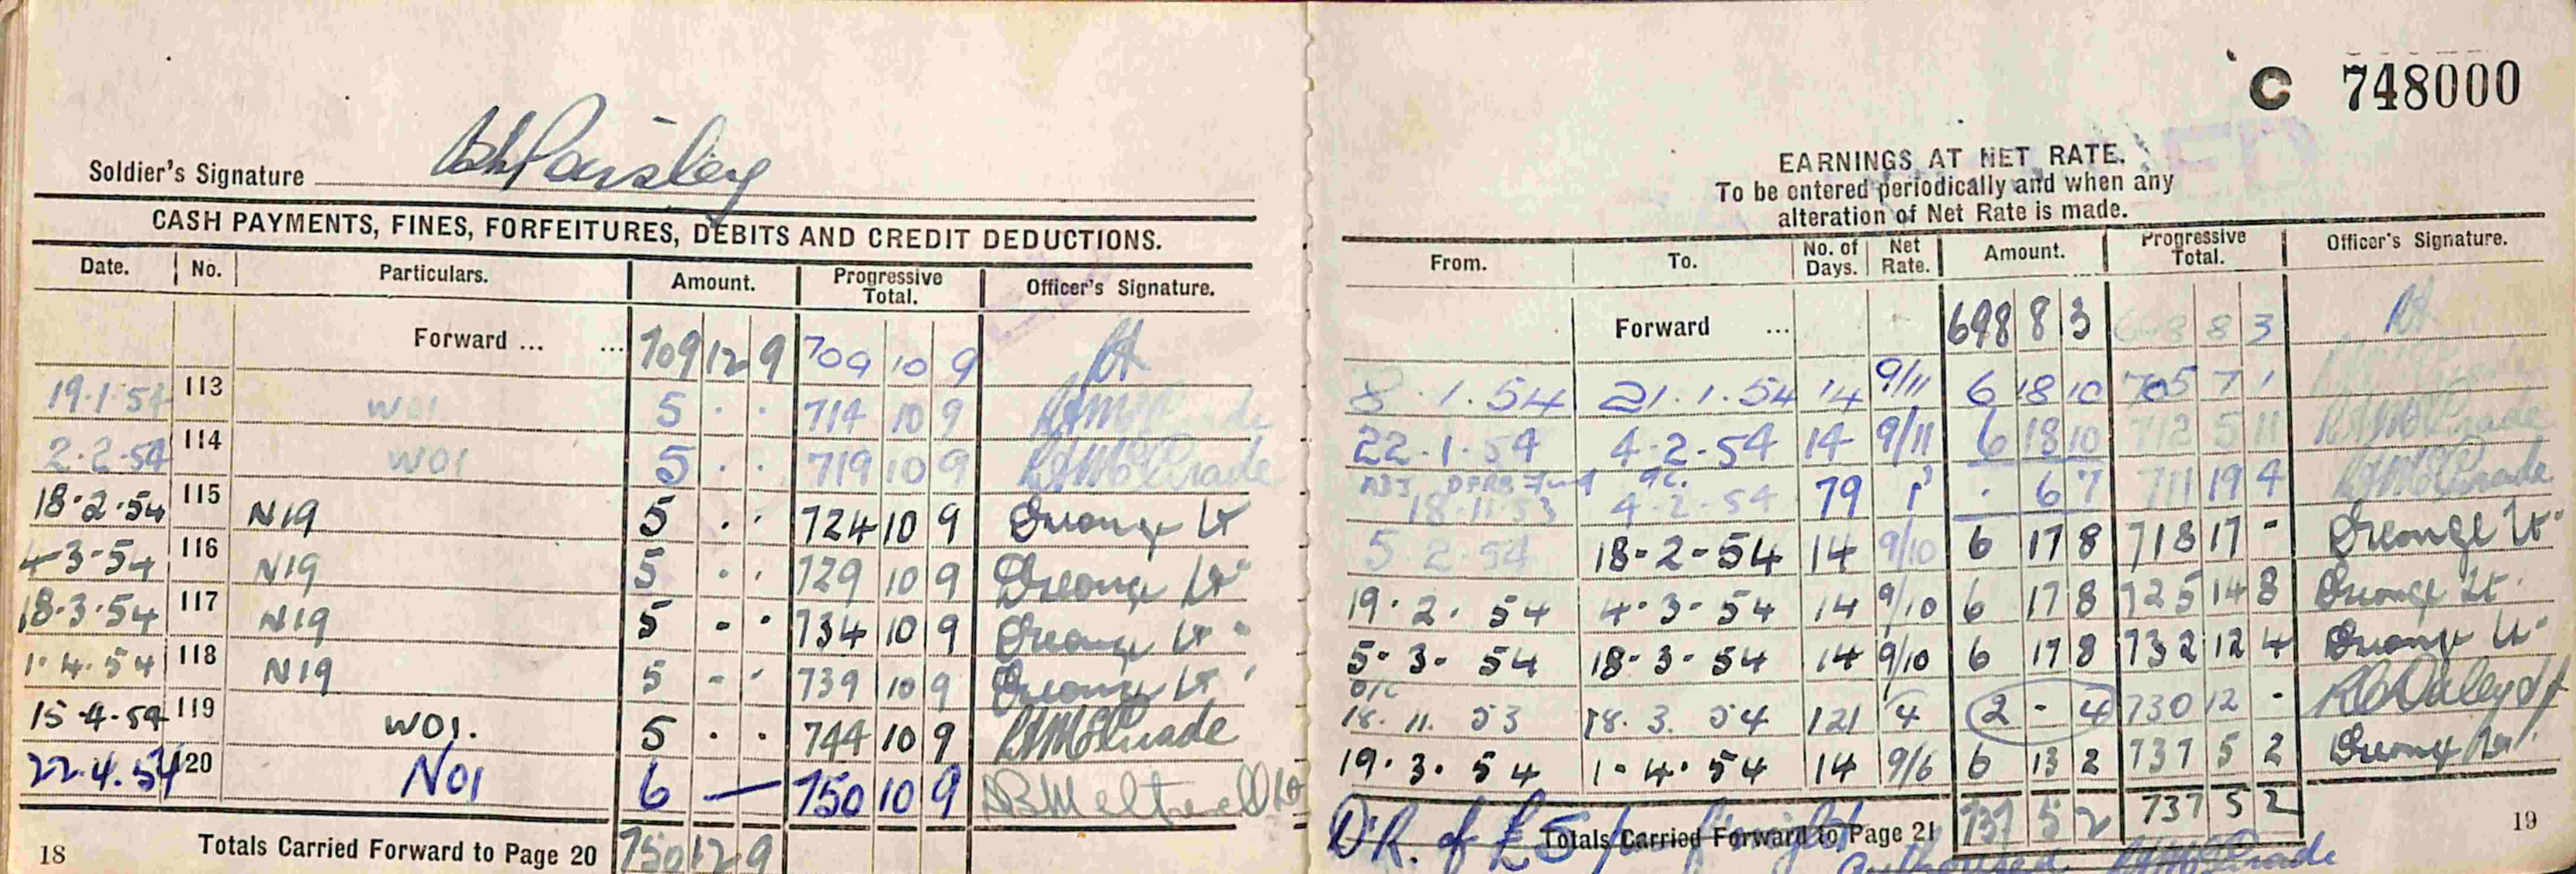 Soldier's Signature Paisley
CASH PAYMENTS, FINES, FORFEITURES, DEBITS AND CREDIT DEDUCTIONS.
Date. No. Particulars. Amount. Progressive Total. Officer's Signature.
Forward ... ... 709 12 9 709 10 9
19.1.54 113 W01 5 . . 714 10 9
2.2.54 114 W01 5 . . 719 10 9
18.2.54 115 N19 5 . . 724 10 9
4-3-54 116 N19 5 . . 729 10 9
18.3.54 117 N19 5 - . 734 10 9
1.4.54 118 N19 5 - . 739 10 9
15-4-54 119 W01. 5 . . 744 10 9
22.4.54 120 N01 6 — 750 10 9
Totals Carried Forward to Page 20 750 12 9
18
C 748000
EARNINGS AT NET RATE.
To be entered periodically and when any
alteration of Net Rate is made.
From. To. No. of Days. Net Rate. Amount. Progressive Total. Officer's Signature.
Forward ... 698 8 3 698 8 3
8.1.54 21.1.54 14 9/11 6 18 10 705 7 1
22.1.54 4.2.54 14 9/11 6 18 10 712 5 11
18.11.53 4-2-54 79 1 . 6 7 711 19 4
5 2 54 18-2-54 14 9/10 6 17 8 718 17 -
19.2.54 4.3.54 14 9/10 6 17 8 725 14 8
5-3-54 18-3-54 14 9/10 6 17 8 732 12 4
O/C
18.11.53 18.3.54 121 4 2 - 4 730 12 -
19.3.54 1.4.54 14 9/6 6 13 2 737 5 2
Totals Carried Forward to Page 21 737 5 2 737 5 2
of £5
19